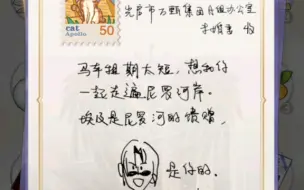 cat
Apollo
50
先启市万甄集团月组办公室
李明書 收
马车租期太短，想和你
一起走遍尼罗河岸。
埃及是尼罗河的馈赠，
是你的。